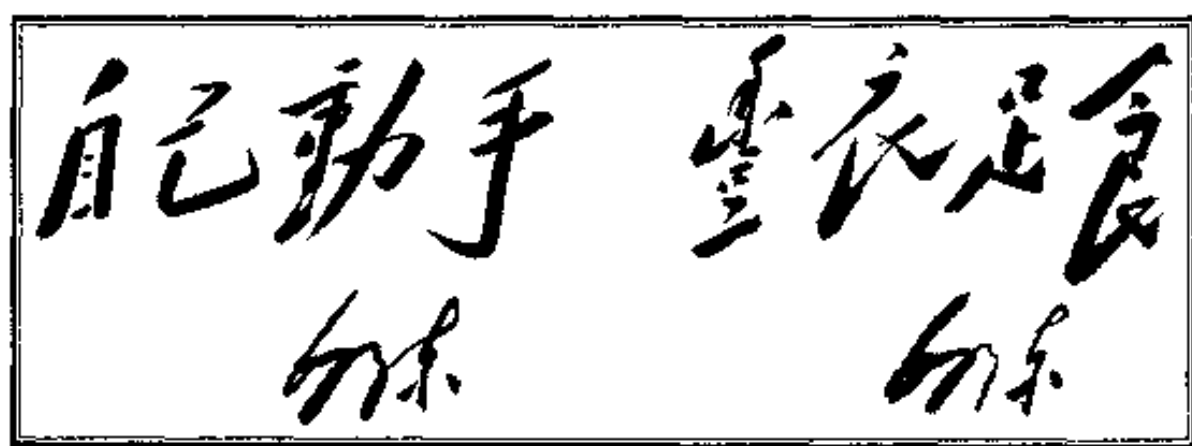 自己動手 豐衣足食
毛澤東 毛澤東